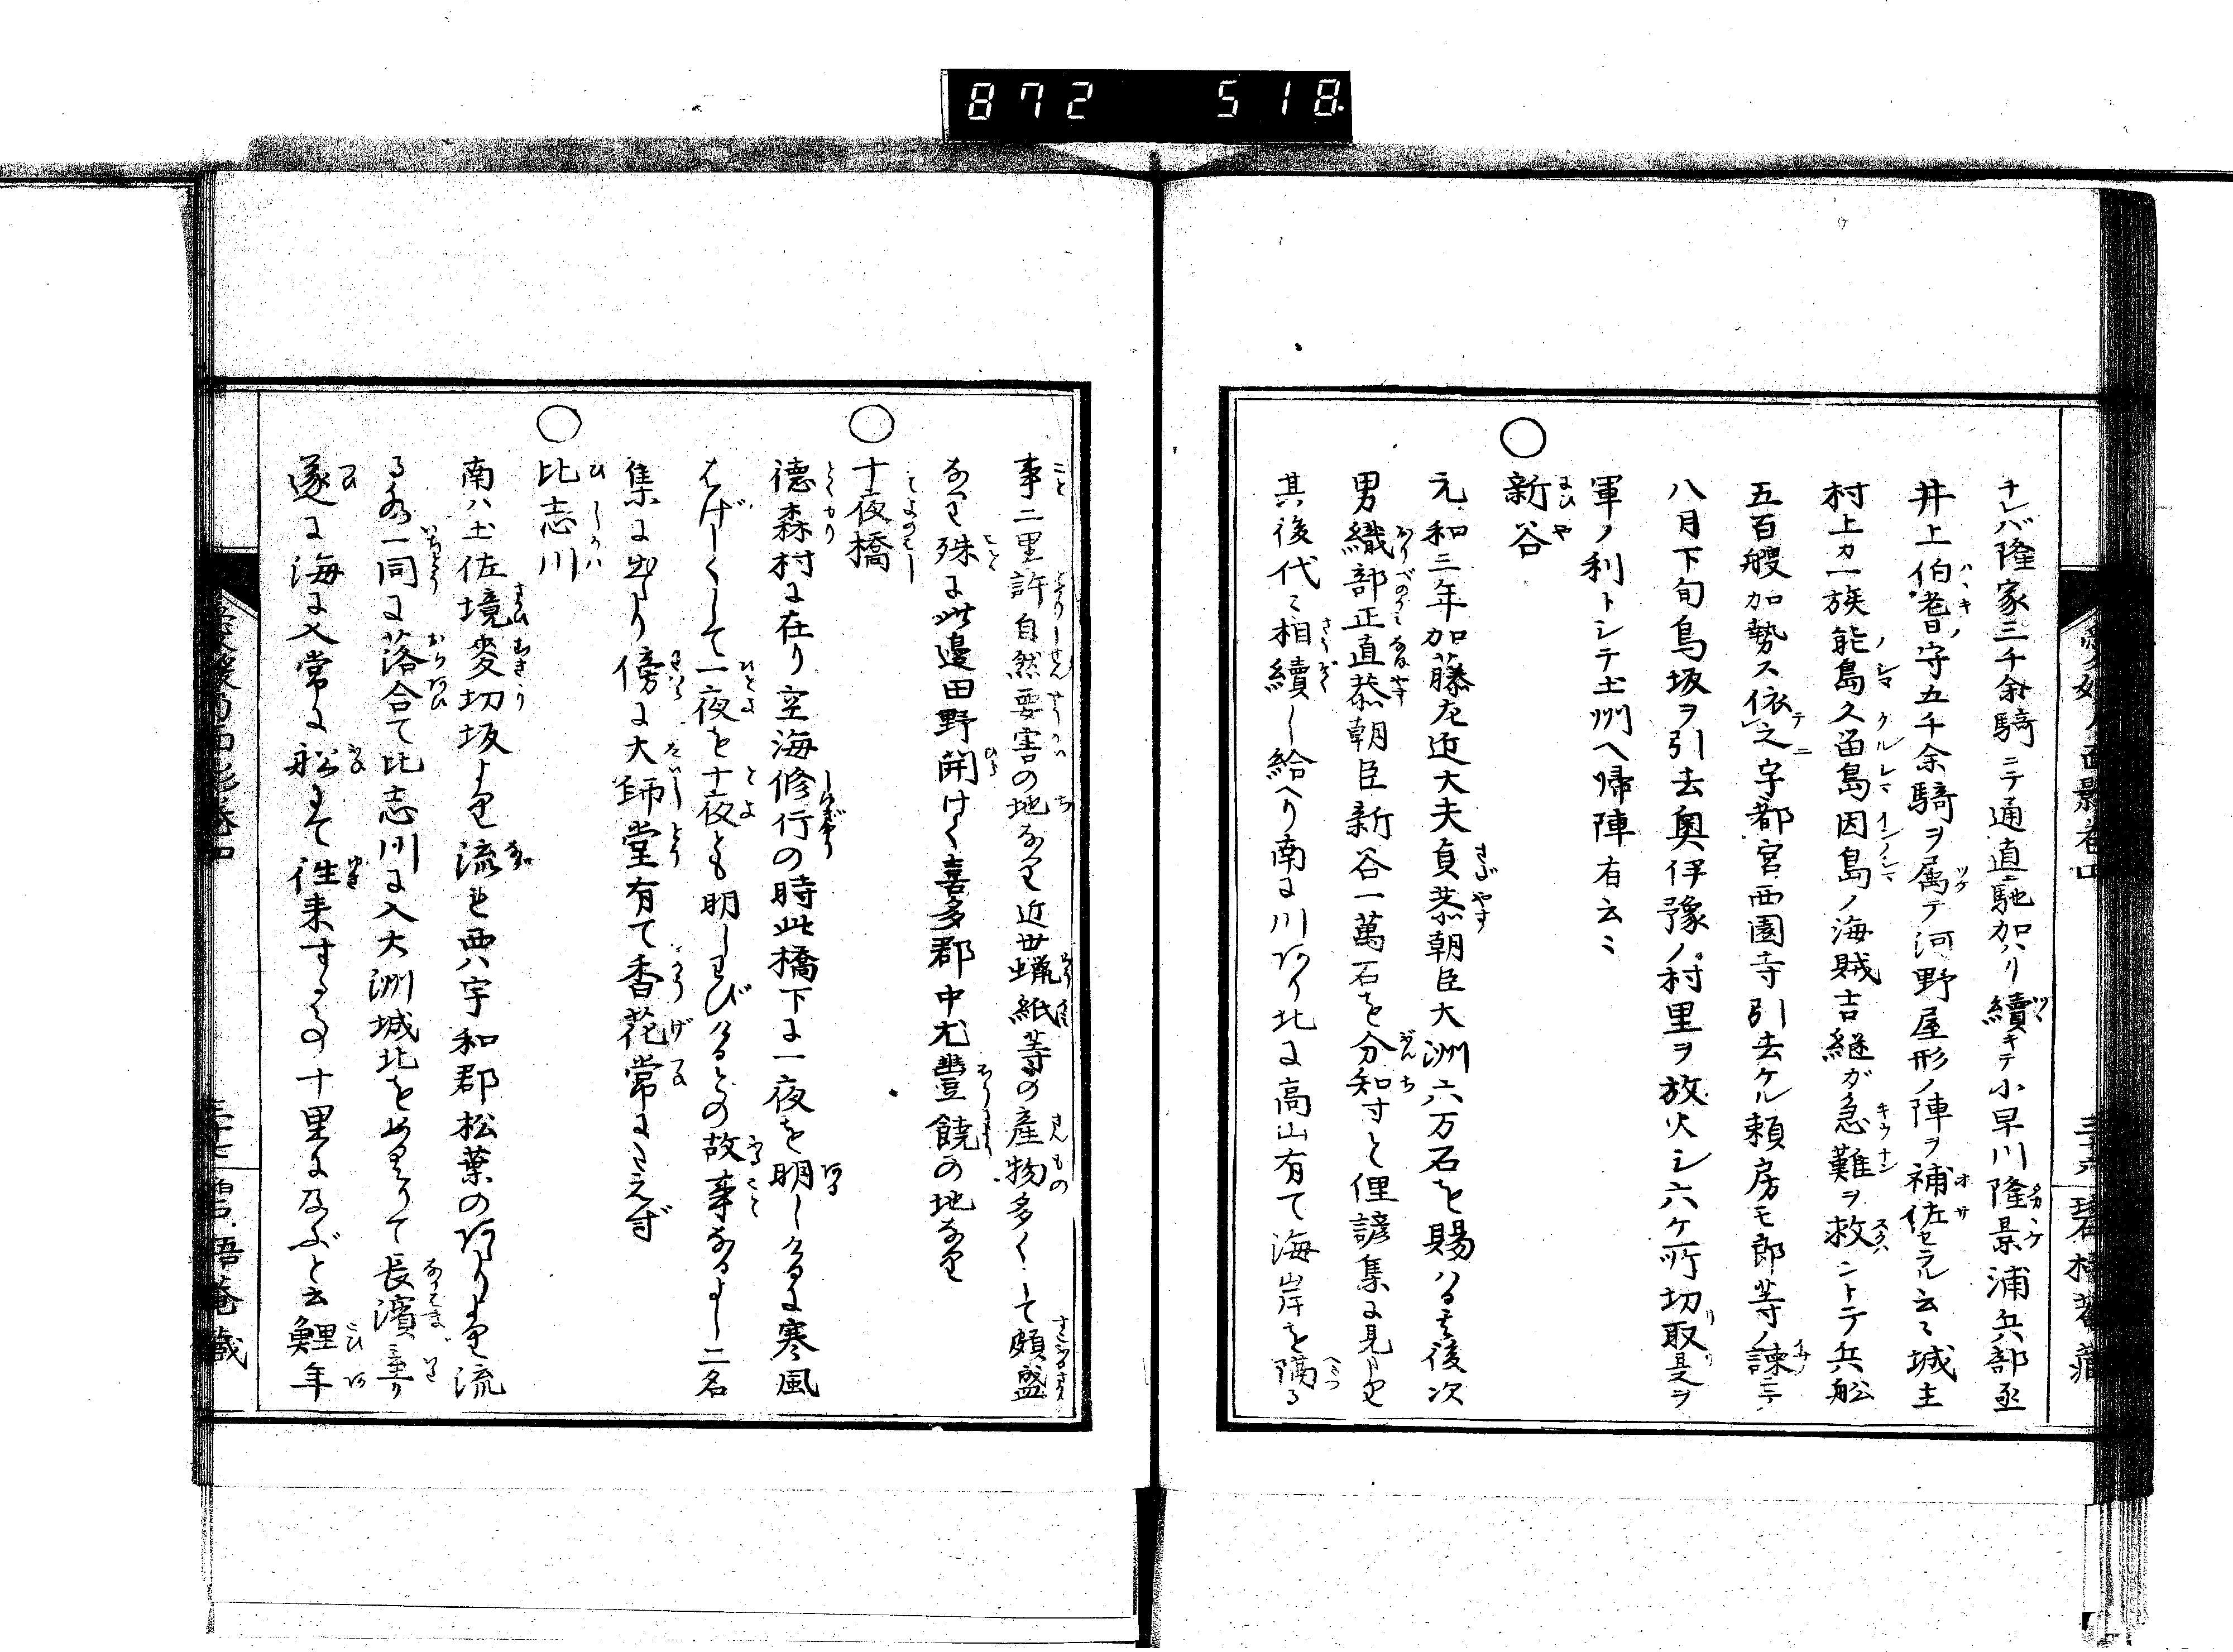 872 518
ナレバ隆家三千余騎ニテ通直ニ馳加ハリ續キテ小早川隆景浦兵部丞
井上伯耆守五千余騎ヲ属テ河野屋形ノ陣ヲ補佐セラル云々城主
村上カ一族能島久留島因島ノ海賊吉継ガ急難ヲ救ントテ兵舩
五百艘加勢ス依之宇都宮西園寺引去ケル頼房モ郎等ノ諫ニテ
八月下旬鳥坂ヲ引去奥伊豫ノ村里ヲ放火シ六ケ所切取是ヲ
軍ノ利トシテ土州ヘ帰陣有云々
○新谷
元和三年加藤左近大夫貞泰朝臣大洲六万石を賜ハる其後次
男織部正直泰朝臣新谷一萬石を分知すと俚諺集に見ゆ
其後代々相續し給へり南に川あり北に高山有て海岸を隔る
事二里許自然要害の地なり近世蝋紙等の産物多くして頗盛
なり殊に此邊田野開けて喜多郡中尤豊饒の地なり
○十夜橋
德森村に在り空海修行の時此橋下に一夜を明しけるに寒風
はげしくして一夜を十夜とも明しわびけるとの故事なるよし二名
集に出たり傍に大師堂有て香花常にたえず
○比志川
南ハ土佐境麥切坂より流れ西ハ宇和郡松葉のあたりより流
る水一同に落合て比志川に入大洲城北をめぐりて長濱に至り
遂に海に入常に舩にて往来する事十里に及ぶと云鯉年